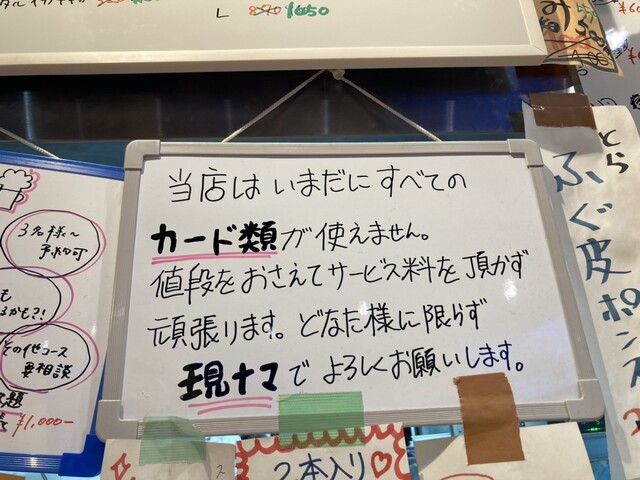 L 870 ¥650
当店は いまだに すべての
カード類が使えません。
値段をおさえてサービス料を頂かず
頑張ります。どなた様に限らず
現ナマで よろしくお願いします。
3名様〜
予約可
も
るかも?!
その他コース
要相談
¥1,000-
とら
ふぐ皮ポン
2本入り♡